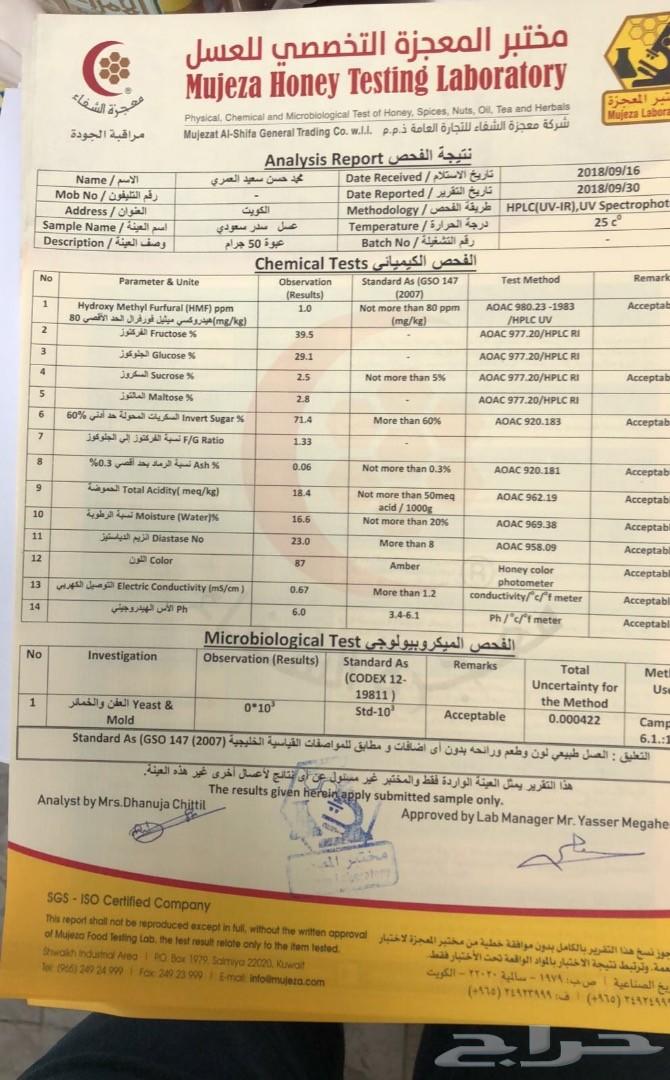 مختبر المعجزة التخصصي للعسل
Mujeza Honey Testing Laboratory
Physical, Chemical and Microbiological Test of Honey, Spices, Nuts, Oil, Tea and Herbals
Mujezat Al-Shifa General Trading Co. w.l.l. شركة معجزة الشفاء للتجارة العامة ذ.م.م
معجزة الشفاء
مراقبة الجودة
مختبر المعجزة
Mujeza Labora
Analysis Report نتيجة الفحص
Name / الاسم محمد حسن سعيد العمري Date Received / تاريخ الاستلام 2018/09/16
Mob No / رقم التليفون - Date Reported / تاريخ التقرير 2018/09/30
Address / العنوان الكويت Methodology / طريقة الفحص HPLC(UV-IR),UV Spectrophot
Sample Name / اسم العينة عسل سدر سعودي Temperature / درجة الحرارة 25 c⁰
Description / وصف العينة عبوة 50 جرام Batch No / رقم التشغيلة -
Chemical Tests الفحص الكيميائي
No Parameter & Unite Observation (Results) Standard As (GSO 147 (2007) Test Method Remark
1 Hydroxy Methyl Furfural (HMF) ppm هيدروكسي ميثيل فورفرال الحد الأقصي 80 (mg/kg) 1.0 Not more than 80 ppm (mg/kg) AOAC 980.23 -1983 /HPLC UV Acceptab
2 الفركتوز Fructose % 39.5 - AOAC 977.20/HPLC RI
3 الجلوكوز Glucose % 29.1 - AOAC 977.20/HPLC RI
4 السكروز Sucrose % 2.5 Not more than 5% AOAC 977.20/HPLC RI Acceptab
5 المالتوز Maltose % 2.8 - AOAC 977.20/HPLC RI
6 السكريات المحولة حد أدني 60% Invert Sugar % 71.4 More than 60% AOAC 920.183 Acceptab
7 نسبة الفركتوز إلي الجلوكوز F/G Ratio 1.33 -
8 نسبة الرماد بحد أقصي 0.3% Ash % 0.06 Not more than 0.3% AOAC 920.181 Acceptab
9 الحموضة Total Acidity( meq/kg) 18.4 Not more than 50meq acid / 1000g AOAC 962.19 Acceptab
10 نسبة الرطوبة Moisture (Water)% 16.6 Not more than 20% AOAC 969.38 Acceptab
11 انزيم الدياستيز Diastase No 23.0 More than 8 AOAC 958.09 Acceptab
12 اللون Color 87 Amber Honey color photometer Acceptab
13 التوصيل الكهربي Electric Conductivity (mS/cm ) 0.67 More than 1.2 conductivity/°c/°f meter Acceptab
14 الأس الهيدروجيني Ph 6.0 3.4-6.1 Ph /°c/°f meter Acceptab
Microbiological Test الفحص الميكروبيولوجي
No Investigation Observation (Results) Standard As (CODEX 12-19811 ) Remarks Total Uncertainty for the Method Met Us
1 العفن والخمائر Yeast & Mold 0*10³ Std-10³ Acceptable 0.000422 Camp 6.1.:1
التعليق : العسل طبيعي لون وطعم ورائحه بدون أى اضافات و مطابق للمواصفات القياسية الخليجية Standard As (GSO 147 (2007)
هذا التقرير يمثل العينة الواردة فقط والمختبر غير مسئول عن أى نتائج لأعسال أخرى غير هذه العينة.
The results given herein apply submitted sample only.
Analyst by Mrs.Dhanuja Chittil
Approved by Lab Manager Mr. Yasser Megahe
SGS - ISO Certified Company
This report shall not be reproduced except in full, without the written approval
of Mujeza Food Testing Lab, the test result relate only to the item tested.
Shwaikh Industrial Area | P.O. Box 1979, Salmiya 22020, Kuwait
Tel: (965) 249 24 999 | Fax: 249 23 999 | E-mail: info@mujeza.com
جوز نسخ هذا التقرير بالكامل بدون موافقة خطية من مختبر المعجزة لاختبار
وترتبط نتيجة الاختبار بالمواد الواقعة تحت الاختبار فقط.
الصناعية | ص.ب: ١٩٧٩ - سالمية ٢٢٠٢٠ - الكويت
(+٩٦٥) | ف: ٢٤٩٢٣٩٩٩ (+٩٦٥)
حراج